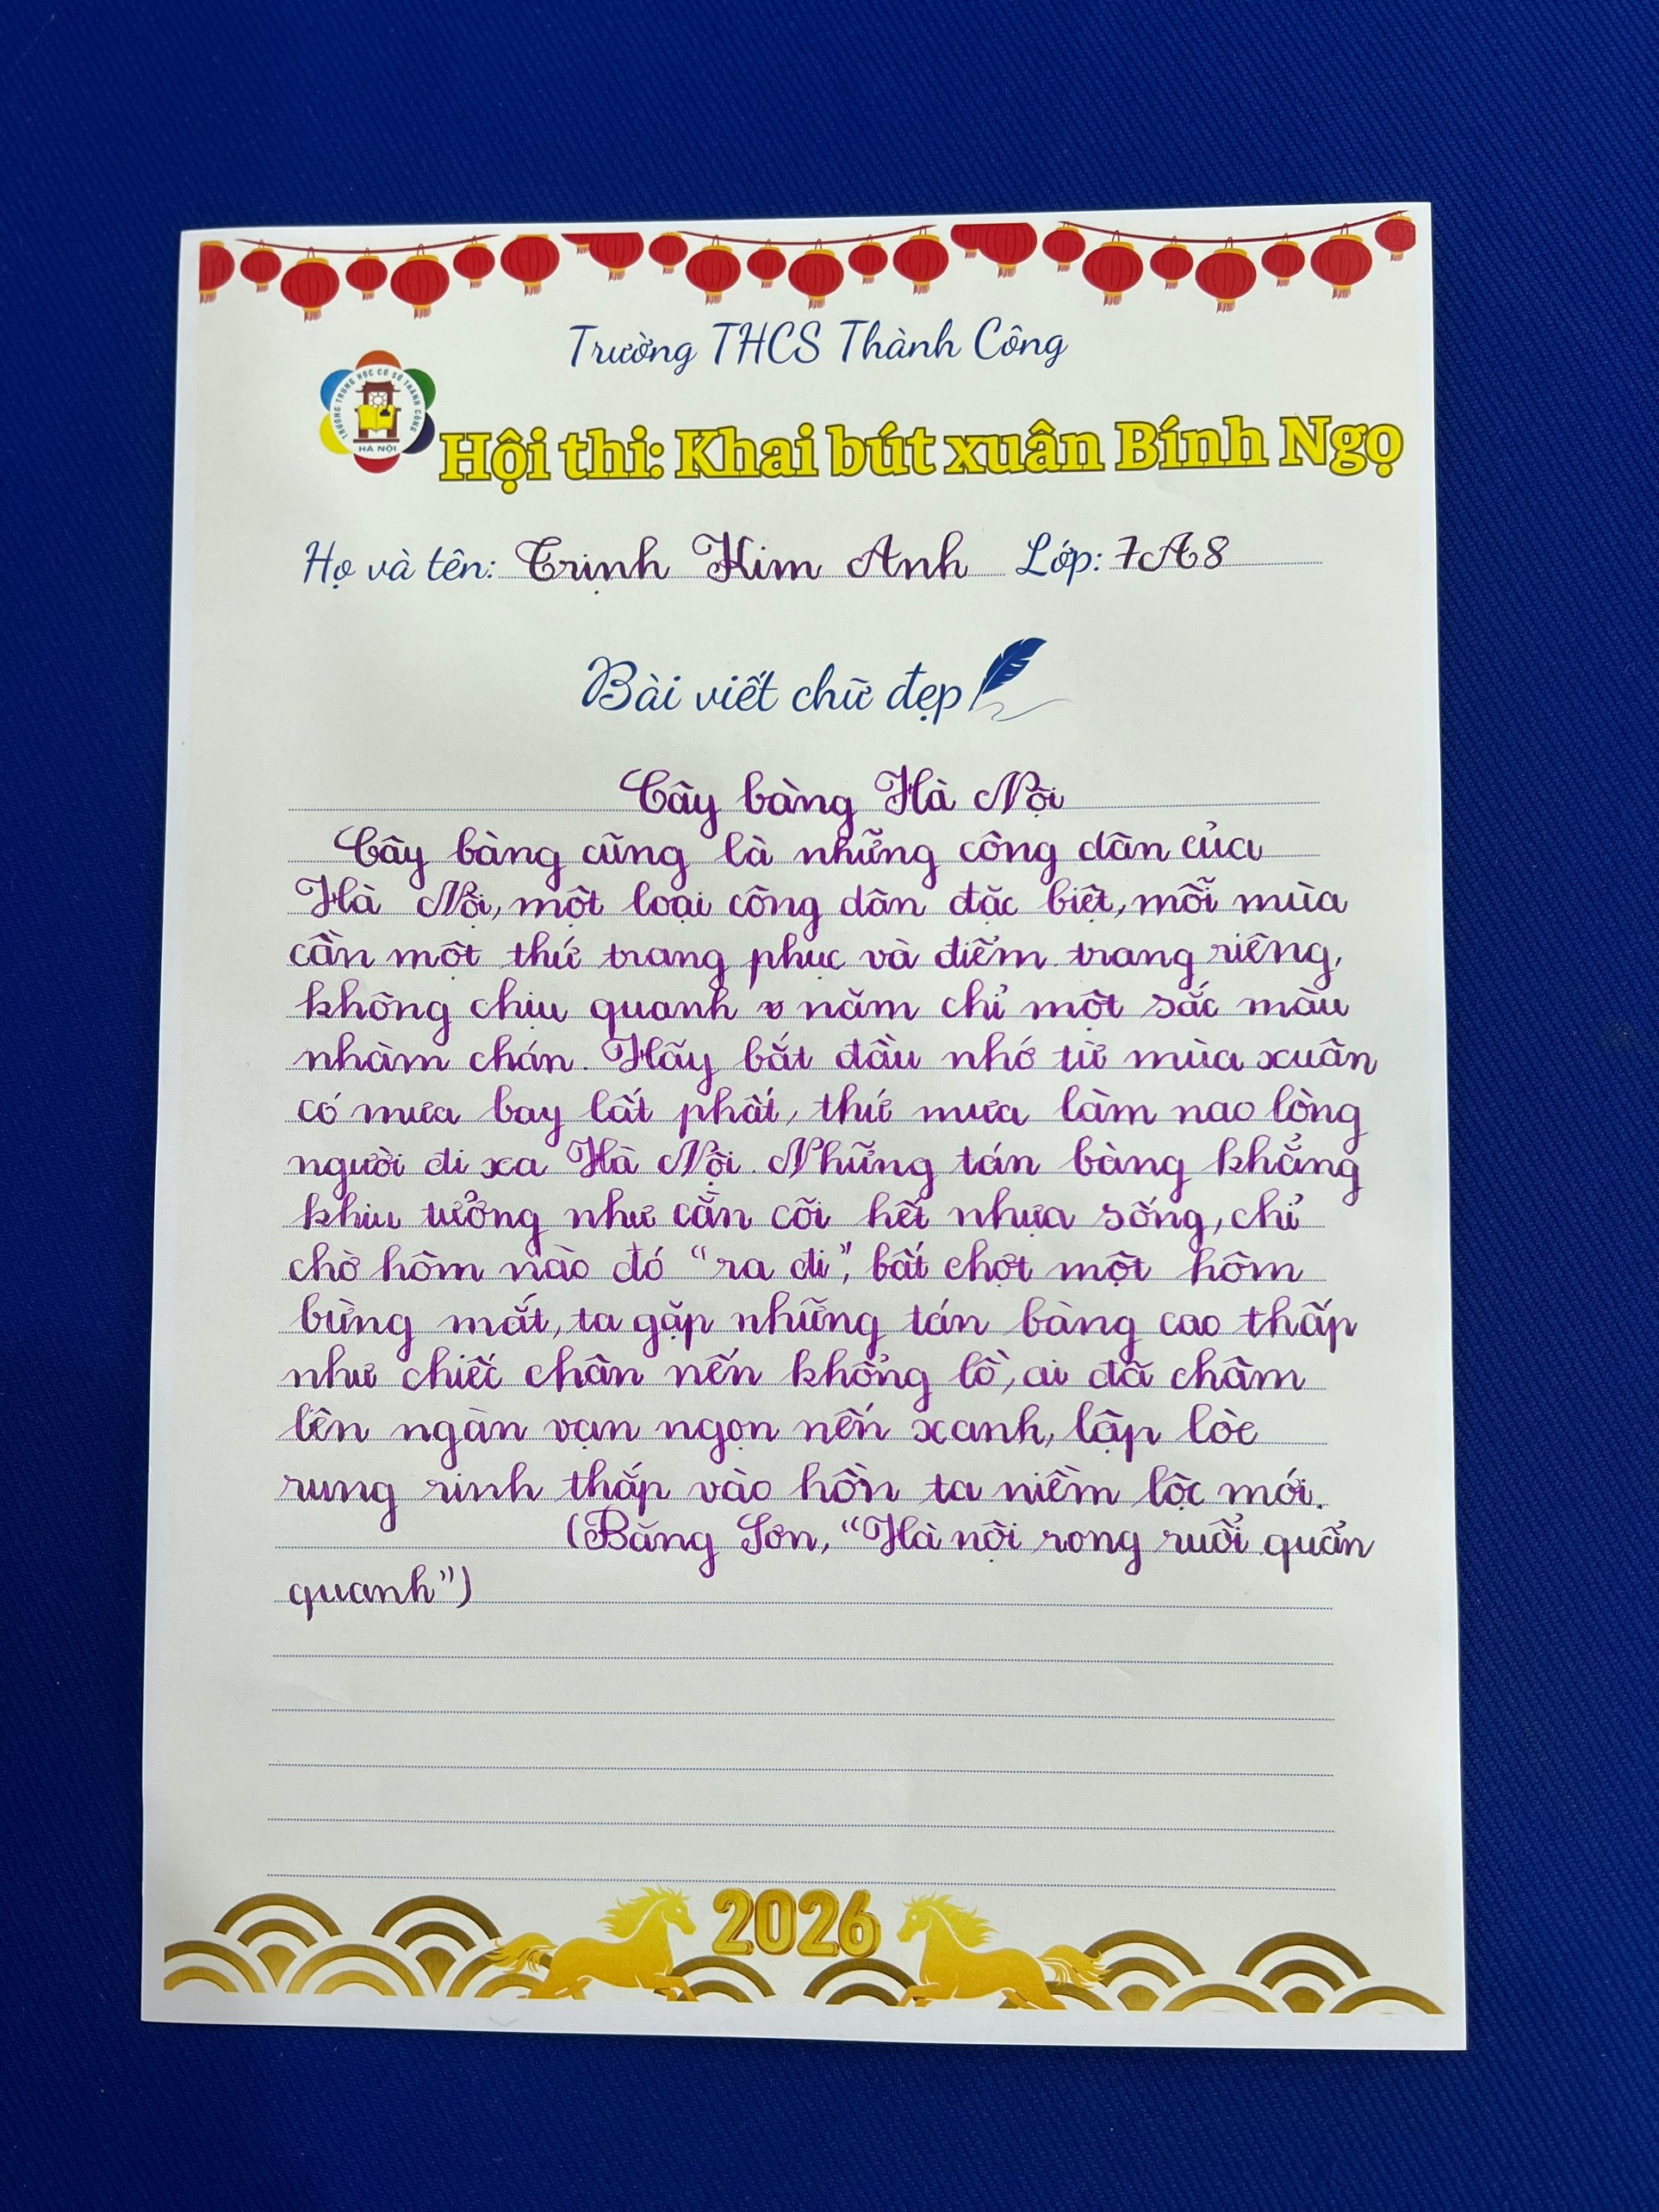 Trường THCS Thành Công
TRƯỜNG TRUNG HỌC CƠ SỞ THÀNH CÔNG
HÀ NỘI
Hội thi: Khai bút xuân Bính Ngọ
Họ và tên: Trịnh Kim Anh Lớp: 7A8
Bài viết chữ đẹp
Cây bàng Hà Nội
Cây bàng cũng là những công dân của
Hà Nội, một loại công dân đặc biệt, mỗi mùa
cần một thứ trang phục và điểm trang riêng,
không chịu quanh năm chỉ một sắc màu
nhàm chán. Hãy bắt đầu nhớ từ mùa xuân
có mưa bay lất phất, thứ mưa làm nao lòng
người đi xa Hà Nội. Những tán bàng khẳng
khiu tưởng như cằn cỗi hết nhựa sống, chỉ
chờ hôm nào đó "ra đi", bất chợt một hôm
bừng mắt, ta gặp những tán bàng cao thấp
như chiếc chân nến khổng lồ, ai đã châm
lên ngàn vạn ngọn nến xanh, lập lòe
rung rinh thắp vào hồn ta niềm lộc mới.
(Băng Sơn, "Hà nội rong ruổi quẩn
quanh")
2026